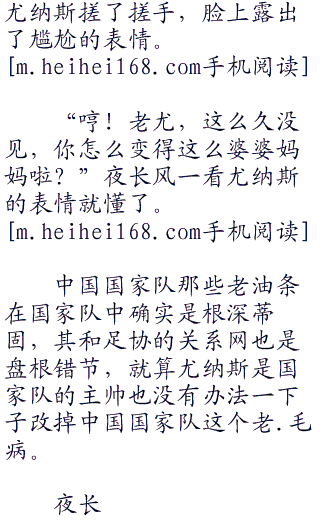 尤纳斯搓了搓手，脸上露出
了尴尬的表情。
[m.heihei168.com手机阅读]
“哼！老尤，这么久没
见，你怎么变得这么婆婆妈
妈啦？”夜长风一看尤纳斯
的表情就懂了。
[m.heihei168.com手机阅读]
中国国家队那些老油条
在国家队中确实是根深蒂
固，其和足协的关系网也是
盘根错节，就算尤纳斯是国
家队的主帅也没有办法一下
子改掉中国国家队这个老.毛
病。
夜长